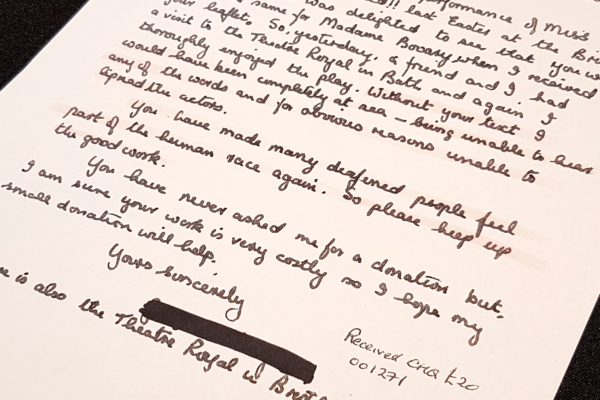 performance of Miss
!! last Easter at the Bri
was delighted to see that you w
same for Madame Bovary when I received
your leaflets. So, yesterday, a friend and I had
a visit to the Theatre Royal in Bath and again I
thoroughly enjoyed the play. Without your text I
would have been completely at sea – being unable to hear
any of the words and for obvious reasons unable to
lipread the actors.
You have made many deafened people feel
part of the human race again. So please keep up
the good work.
You have never asked me for a donation but,
I am sure your work is very costly so I hope my
small donation will help.
Yours sincerely
e is also the Theatre Royal in Brist
Received CHQ £20
001271